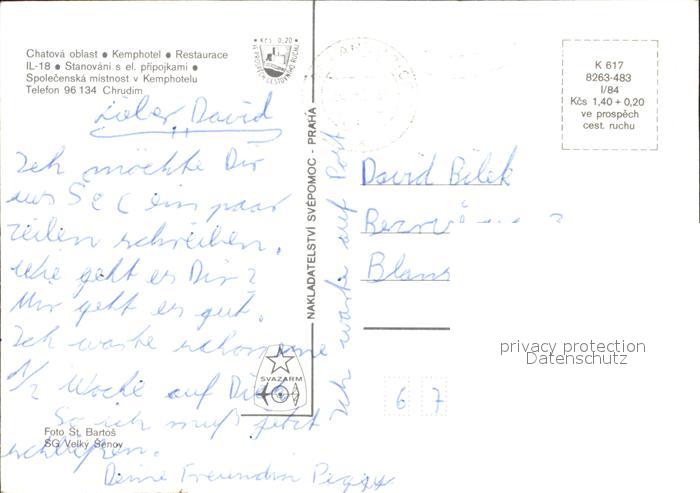 Chatová oblast ● Kemphotel ● Restaurace
IL-18 ● Stanování s el. přípojkami ●
Společenská místnost v Kemphotelu
Telefon 96 134 Chrudim
Kčs 0,20
K 617
8263-483
I/84
Kčs 1,40 + 0,20
ve prospěch
cest. ruchu
Lieber David
Ich möchte Dir
aus Seč ein paar
Zeilen schreiben.
Wie geht es Dir?
Mir geht es gut.
Ich warte schon eine
1/2 Woche auf Dich
So ich muß jetzt
schließen.
Deine Freundin Peggy
Ich warte auf Post
NAKLADATELSTVÍ SVÉPOMOC - PRAHA
David Bilek
Blans
67
SVAZARM
Foto St. Bartoš
SG Velký Šenov
privacy protection
Datenschutz